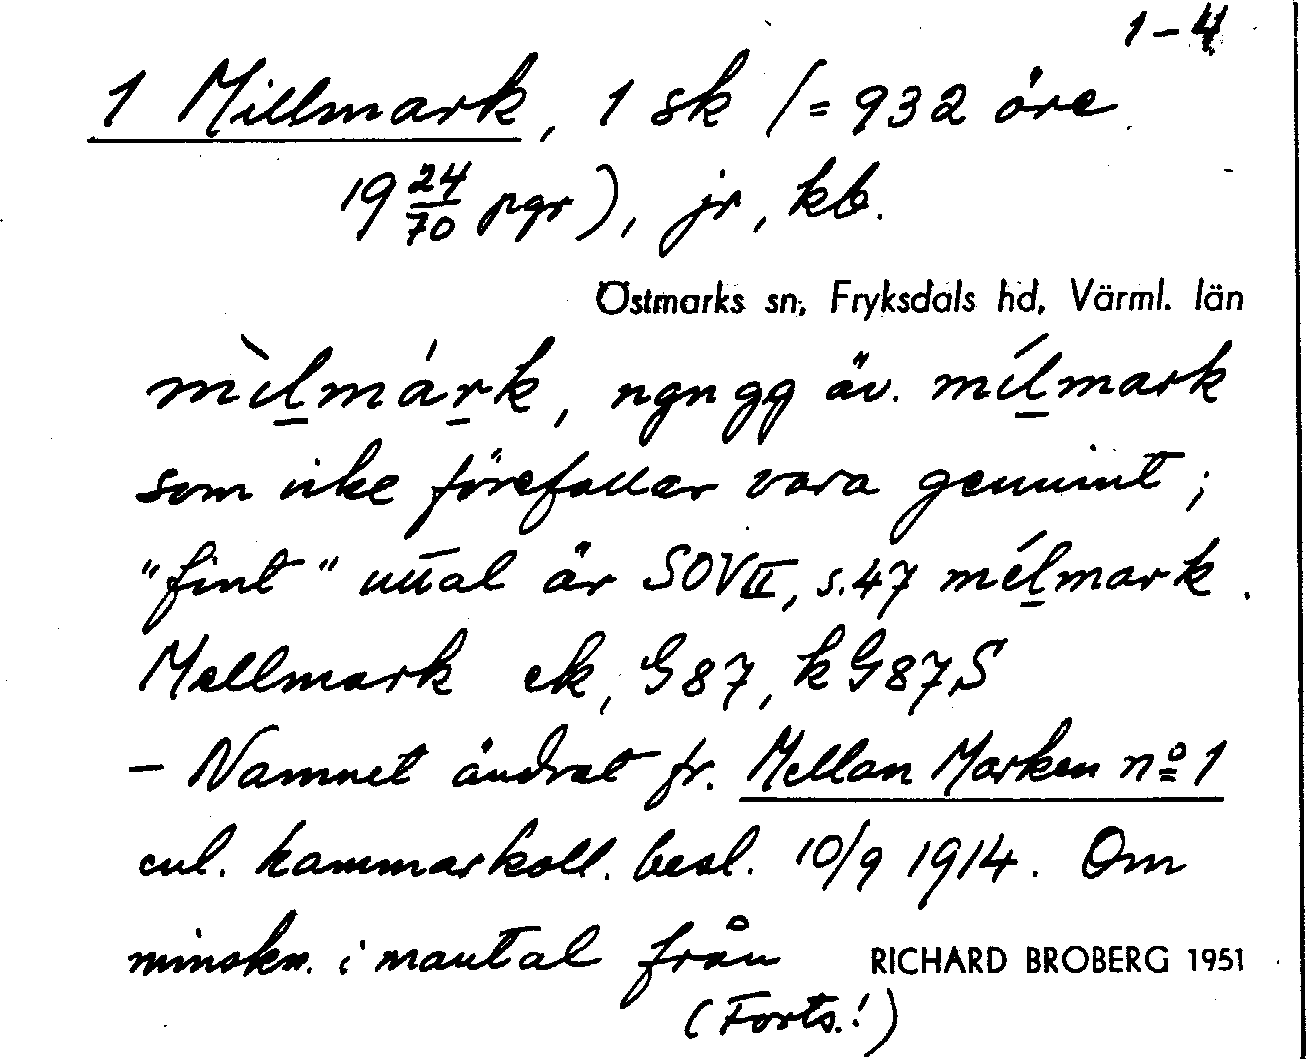 1-4
1 Millmark, 1 sk (= 932 öre
19 24/70 pgr), jr, kb.
Östmarks sn, Fryksdals hd, Värml. län
mìlmárk, ngn gg äv. mílmark
som icke förefaller vara genuint;
"fint" uttal är SOV II, s. 47 mélmark.
Mellmark ek, G 87, k G 87 S
- Namnet ändrat fr. Mellan Marken nº 1
enl. kammarkoll. besl. 10/9 1914. Om
minskn. i mantal från
RICHARD BROBERG 1951
(Forts.!)